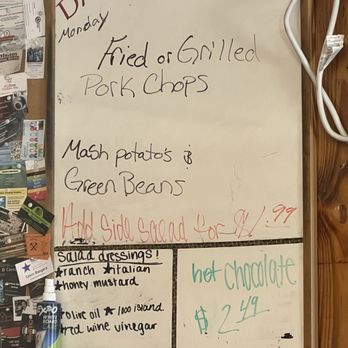 Monday
Fried or Grilled
Pork Chops
Mash potato's &
Green Beans
Add side salad for $1.99
Salad dressings!
★ranch ★italian
★honey mustard
★olive oil ★1000 island
★red wine vinegar
hot chocolate
$2.49
EXPO